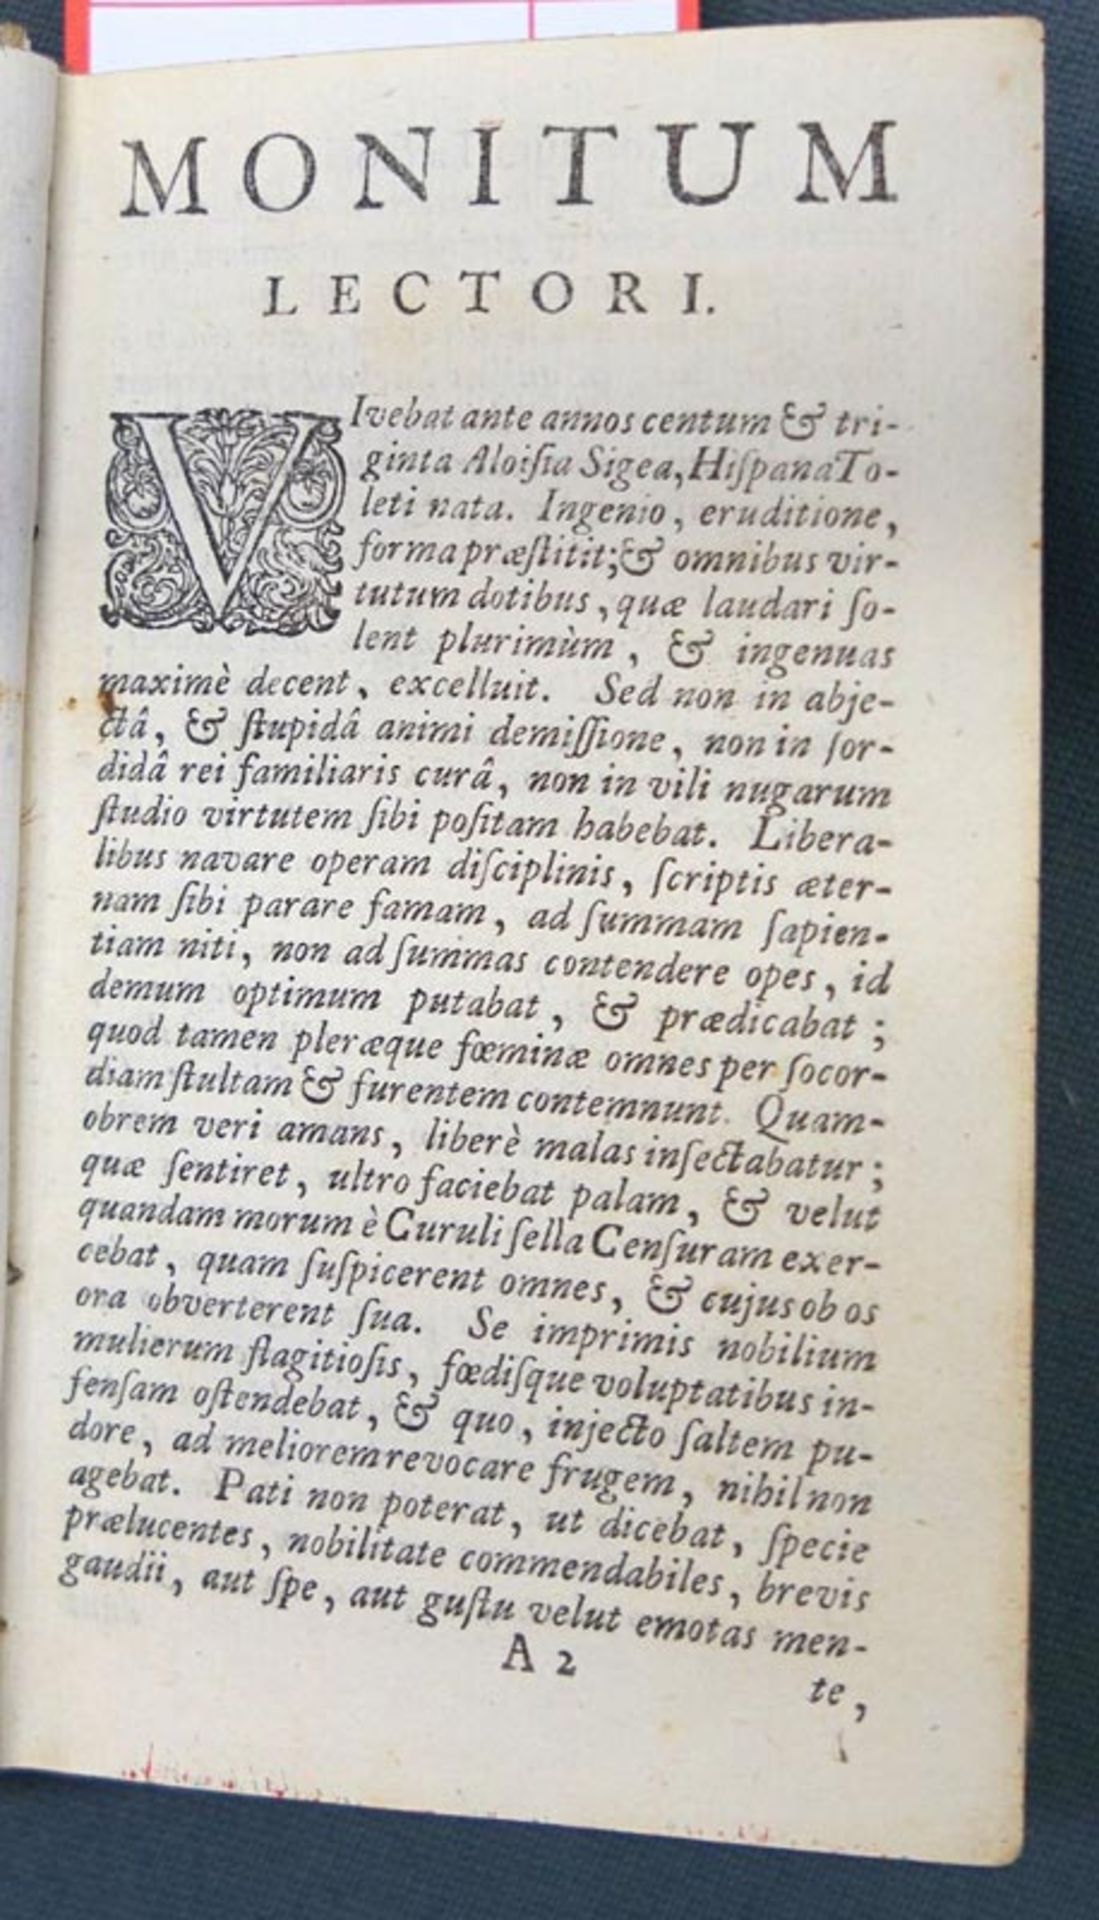 MONITUM
LECTORI.
VIvebat ante annos centum & tri-
ginta Aloiſia Sigea, Hiſpana To-
leti nata. Ingenio, eruditione,
forma præſtitit; & omnibus vir-
tutum dotibus, quæ laudari ſo-
lent plurimùm, & ingenuas
maximè decent, excelluit. Sed non in abje-
ctâ, & ſtupidâ animi demiſſione, non in ſor-
didâ rei familiaris curâ, non in vili nugarum
ſtudio virtutem ſibi poſitam habebat. Libera-
libus navare operam diſciplinis, ſcriptis æter-
nam ſibi parare famam, ad ſummam ſapien-
tiam niti, non ad ſummas contendere opes, id
demum optimum putabat, & prædicabat;
quod tamen pleræque fœminæ omnes per ſocor-
diam ſtultam & furentem contemnunt. Quam-
obrem veri amans, liberè malas inſectabatur;
quæ ſentiret, ultro faciebat palam, & velut
quandam morum è Curuli ſella Cenſuram exer-
cebat, quam ſuſpicerent omnes, & cujus ob os
ora obverterent ſua. Se imprimis nobilium
mulierum flagitioſis, fœdiſque voluptatibus in-
fenſam oſtendebat, & quo, injecto ſaltem pu-
dore, ad meliorem revocare frugem, nihil non
agebat. Pati non poterat, ut dicebat, ſpecie
prælucentes, nobilitate commendabiles, brevis
gaudii, aut ſpe, aut guſtu velut emotas men-
A 2
te,